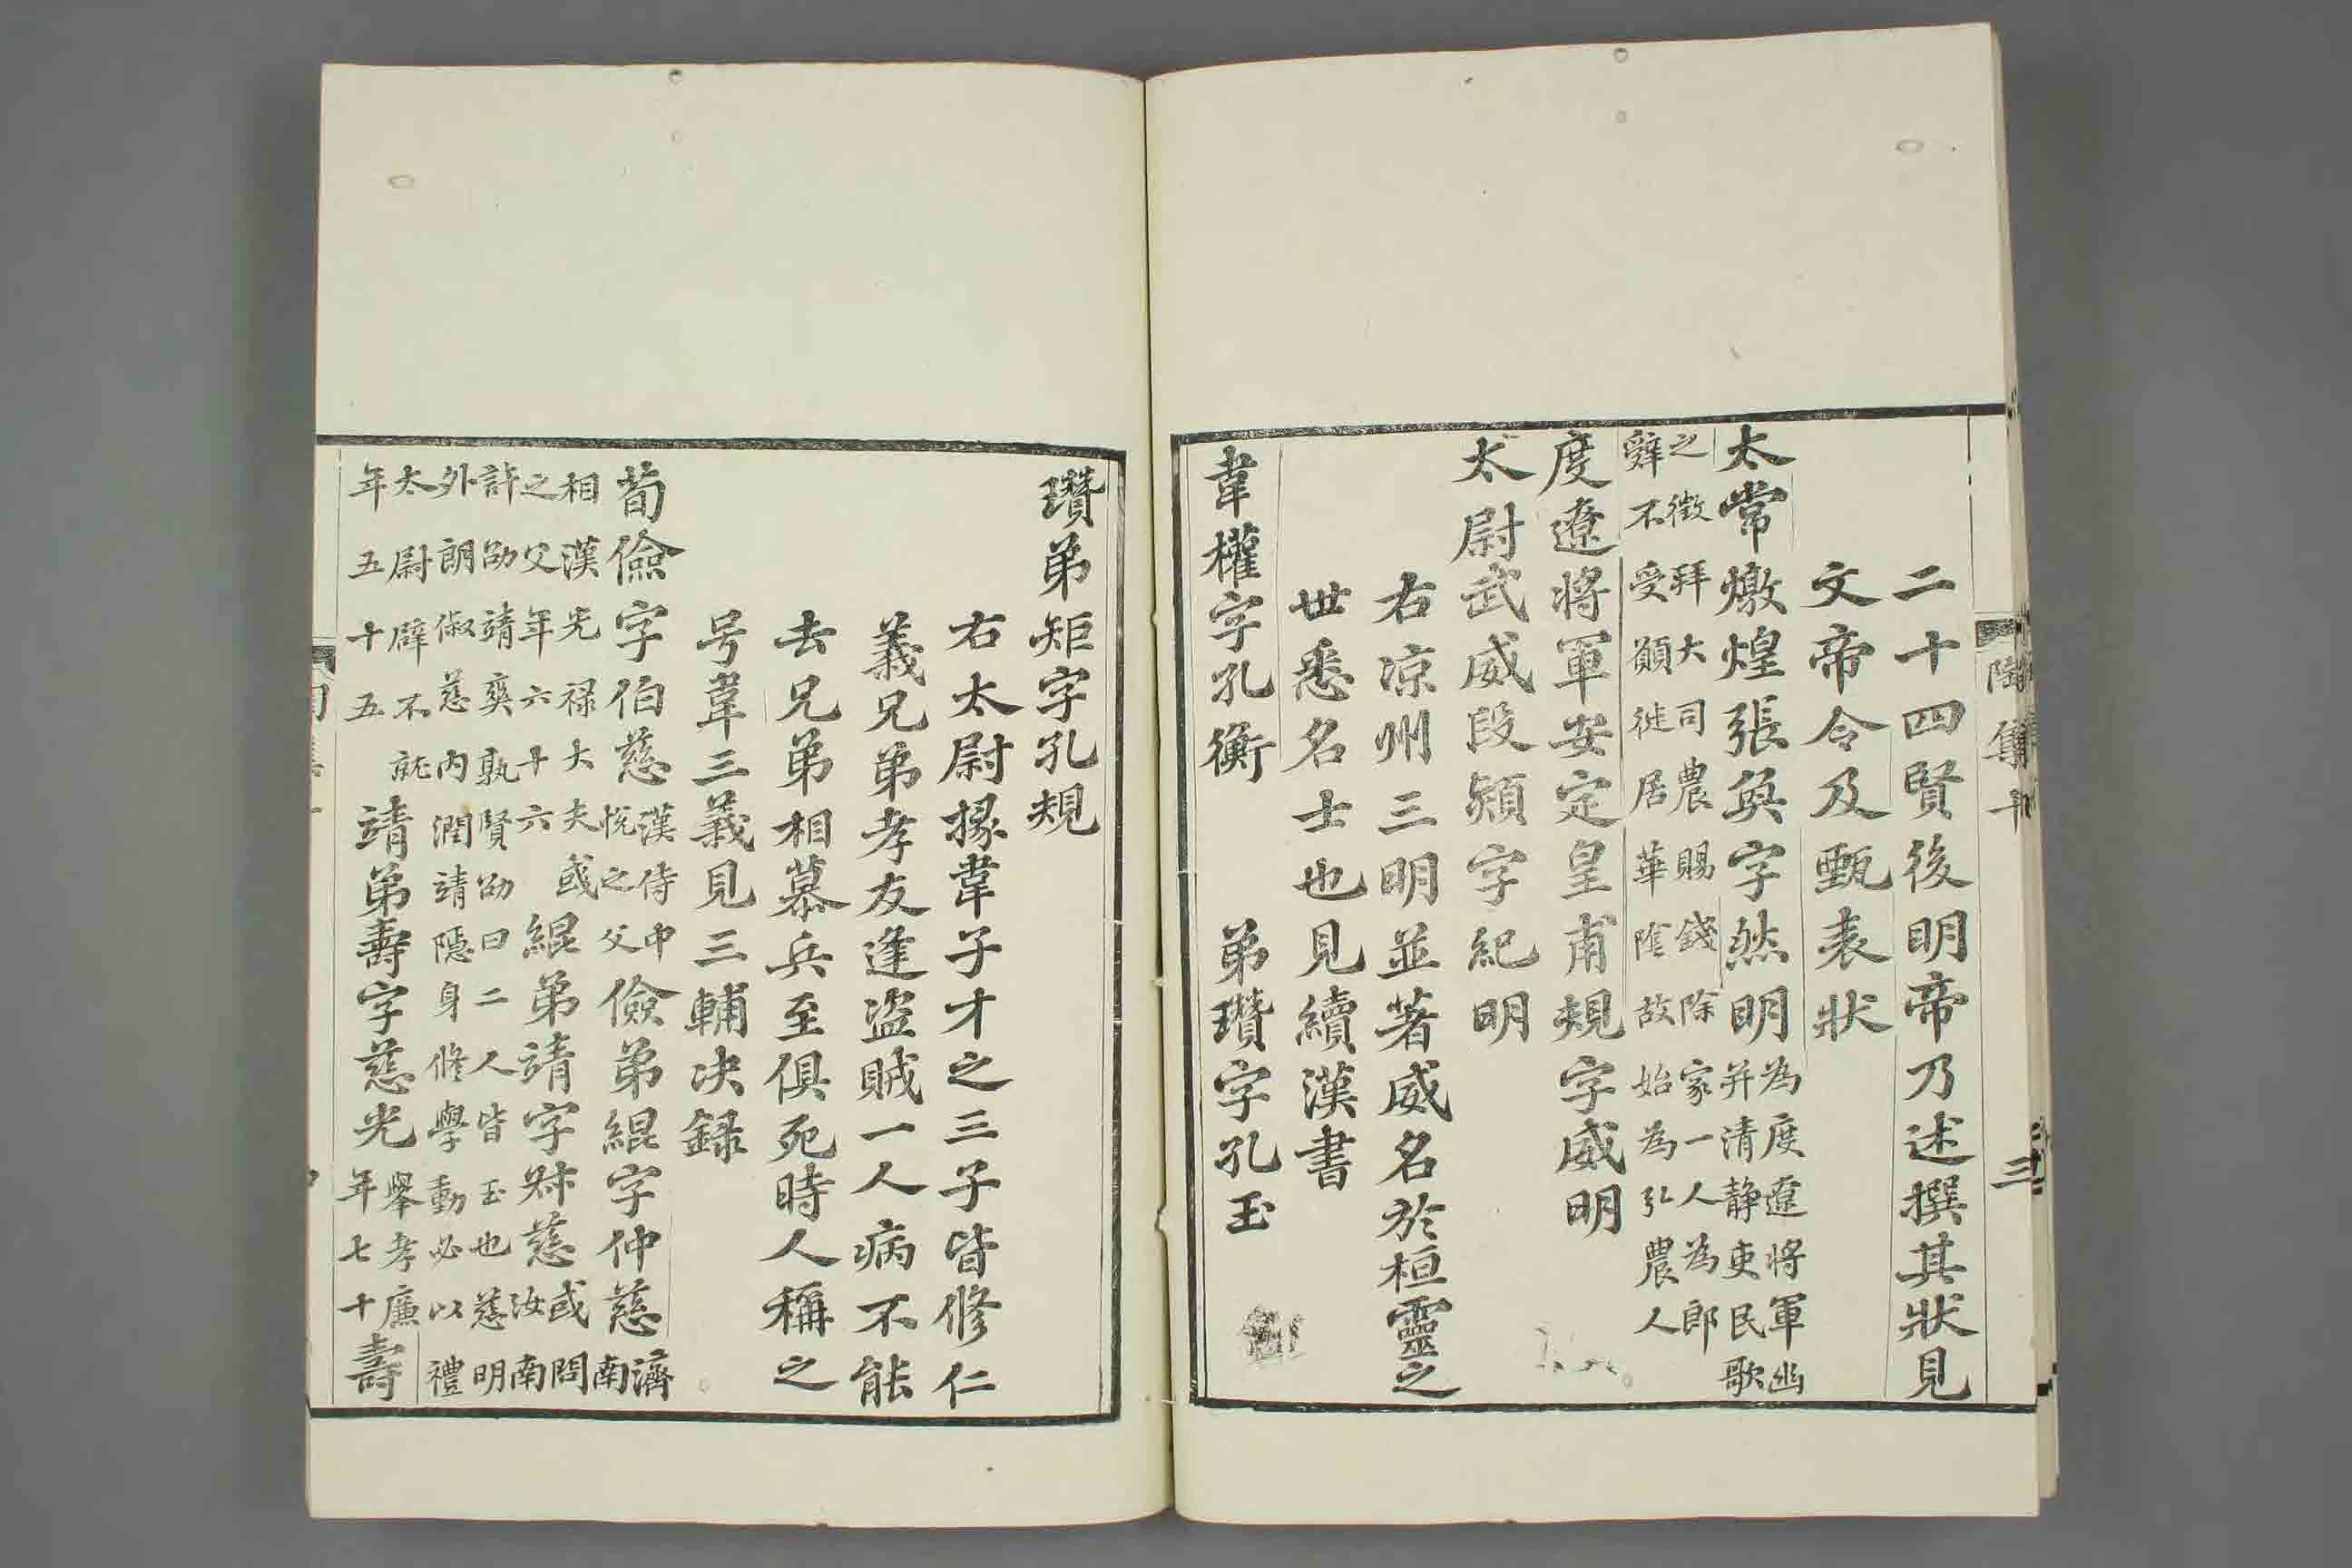 陶集十
三
二十四賢後明帝乃述撰其狀見
文帝令及甄表狀
太常燉煌張奐字然明為度遼將軍幽并清静吏民歌
之徵拜大司農賜錢除家一人為郎
辭不受願徙居華陰故始為弘農人
度遼將軍安定皇甫規字威明
太尉武威段熲字紀明
右凉州三明並著威名於桓靈之
世悉名士也見續漢書
韋權字孔衡　弟瓚字孔玉
瓚弟矩字孔規
右太尉掾韋子才之三子皆修仁
義兄弟孝友逢盜賊一人病不能
去兄弟相慕兵至俱死時人稱之
号韋三義見三輔决録
荀儉字伯慈漢侍中悦之父儉弟緄字仲慈濟南
相漢光禄大夫彧之父年六十六緄弟靖字叔慈或問汝南
許劭靖爽孰賢劭曰二人皆玉也慈明
外朗俶慈内潤靖隱身修學動必以禮
太尉辟不就年五十五靖弟壽字慈光舉孝廉年七十壽